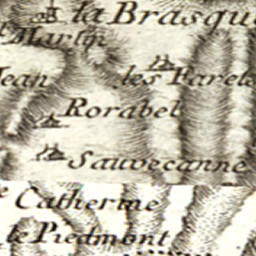 la Brasqu
Martin
Jean
les Farel
Rorabel
Sauvecanne
Catherine
le Piedmont